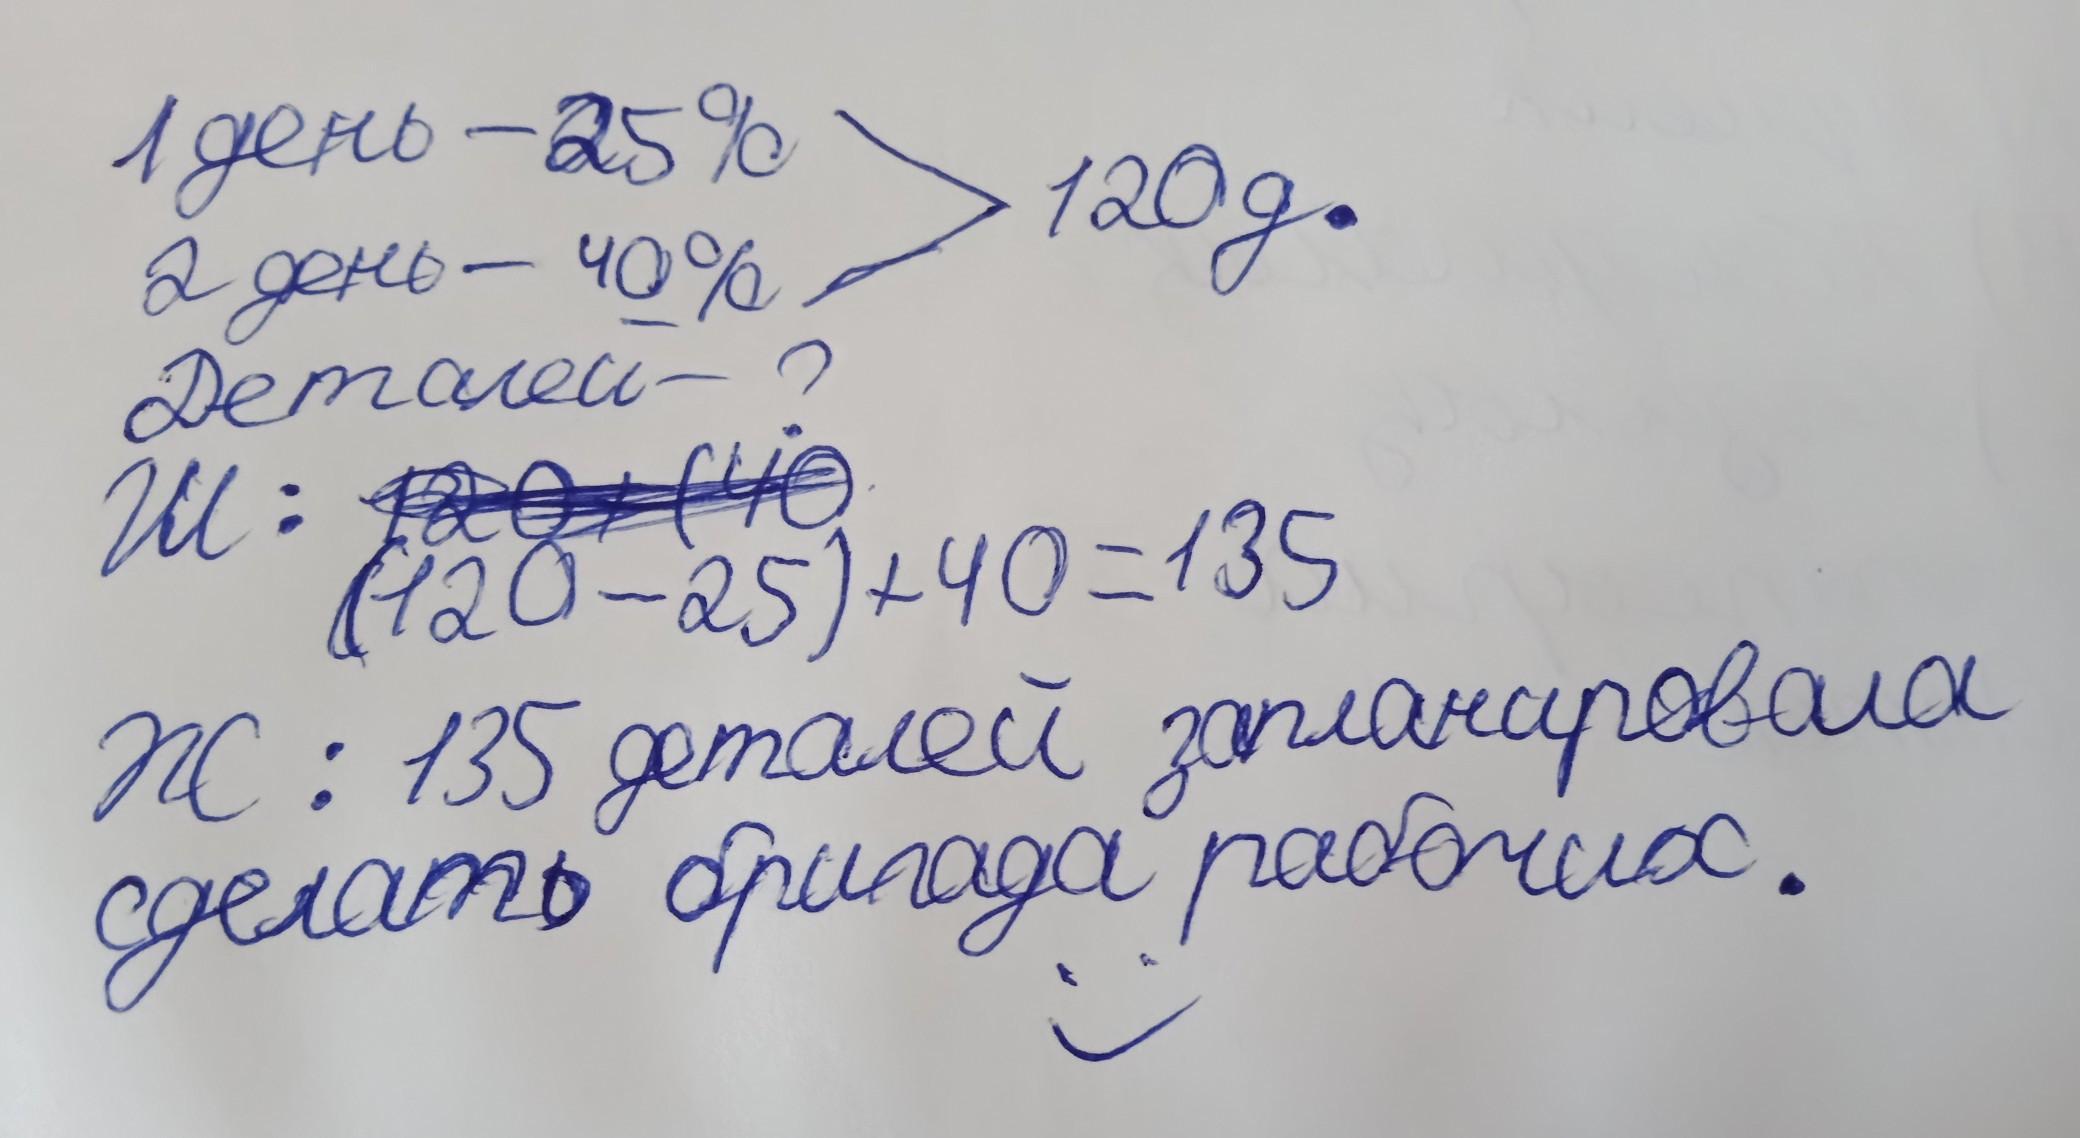 1 день - 25%
2 день - 40%
120 д.
Деталей - ?
Ш: 120+(40
(120-25)+40=135
Ж: 135 деталей запланировала
сделать бригада рабочих.